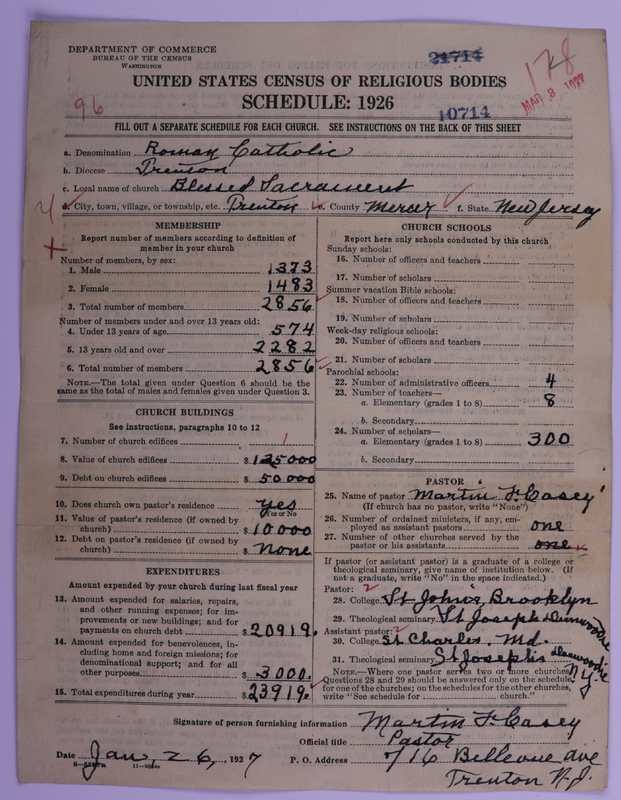 DEPARTMENT OF COMMERCE
BUREAU OF THE CENSUS
WASHINGTON
21714
178
MAR 8 1927
UNITED STATES CENSUS OF RELIGIOUS BODIES
SCHEDULE: 1926
96
10714
FILL OUT A SEPARATE SCHEDULE FOR EACH CHURCH. SEE INSTRUCTIONS ON THE BACK OF THIS SHEET
a. Denomination Roman Catholic
b. Diocese Trenton
c. Local name of church Blessed Sacrament
d. City, town, village, or township, etc. Trenton e. County Mercer f. State New Jersey
MEMBERSHIP
Report number of members according to definition of
member in your church
Number of members, by sex:
1. Male 1373
2. Female 1483
3. Total number of members 2856
Number of members under and over 13 years old:
4. Under 13 years of age 574
5. 13 years old and over 2282
6. Total number of members 2856
NOTE.—The total given under Question 6 should be the
same as the total of males and females given under Question 3.
CHURCH BUILDINGS
See instructions, paragraphs 10 to 12
7. Number of church edifices 1
8. Value of church edifices $ 135000
9. Debt on church edifices $ 50.000
10. Does church own pastor's residence yes
Yes or No
11. Value of pastor's residence (if owned by
church) $ 10000
12. Debt on pastor's residence (if owned by
church) $ none
EXPENDITURES
Amount expended by your church during last fiscal year
13. Amount expended for salaries, repairs,
and other running expenses; for im-
provements or new buildings; and for
payments on church debt $ 20919.
14. Amount expended for benevolences, in-
cluding home and foreign missions; for
denominational support; and for all
other purposes $ 3000.
15. Total expenditures during year $ 23919.
CHURCH SCHOOLS
Report here only schools conducted by this church
Sunday schools:
16. Number of officers and teachers
17. Number of scholars
Summer vacation Bible schools:
18. Number of officers and teachers
19. Number of scholars
Week-day religious schools:
20. Number of officers and teachers
21. Number of scholars
Parochial schools:
22. Number of administrative officers 4
23. Number of teachers—
a. Elementary (grades 1 to 8) 8
b. Secondary
24. Number of scholars—
a. Elementary (grades 1 to 8) 300
b. Secondary
PASTOR
25. Name of pastor Martin F. Casey
(If church has no pastor, write "None")
26. Number of ordained ministers, if any, em-
ployed as assistant pastors one
27. Number of other churches served by the
pastor or his assistants one
If pastor (or assistant pastor) is a graduate of a college or
theological seminary, give name of institution below. (If
not a graduate, write "No" in the space indicated.)
Pastor:
28. College St John's, Brooklyn
29. Theological seminary St Joseph's Dunwoodie
Assistant pastor:
30. College St Charles, Md.
31. Theological seminary St Joseph's Dunwoodie N.Y
NOTE.—Where one pastor serves two or more churches,
Questions 28 and 29 should be answered only on the schedule
for one of the churches; on the schedules for the other churches,
write "See schedule for church."
Signature of person furnishing information Martin F. Casey
Official title Pastor
Date Jan 26, 1927 P. O. Address 716 Bellevue ave
Trenton N.J.